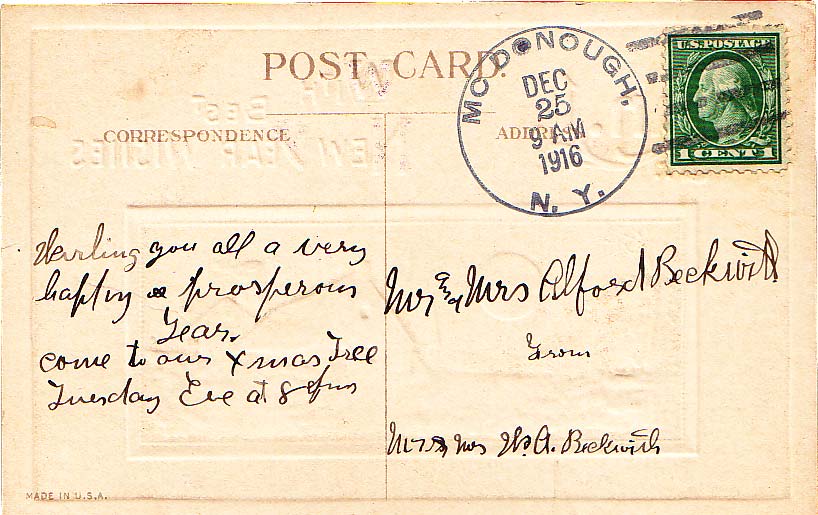 POST CARD.
CORRESPONDENCE
ADDRESS
MCDONOUGH,
DEC
25
9 AM
1916
N. Y.
U.S. POSTAGE
1 CENT 1
WITH BEST
NEW YEAR WISHES
you all a very
happy & prosperous
Year.
come to our Xmas Tree
Tuesday Eve at 8
Mr and Mrs Alford Beckwith
From
Mr & Mrs W. A. Beckwith
MADE IN U.S.A.